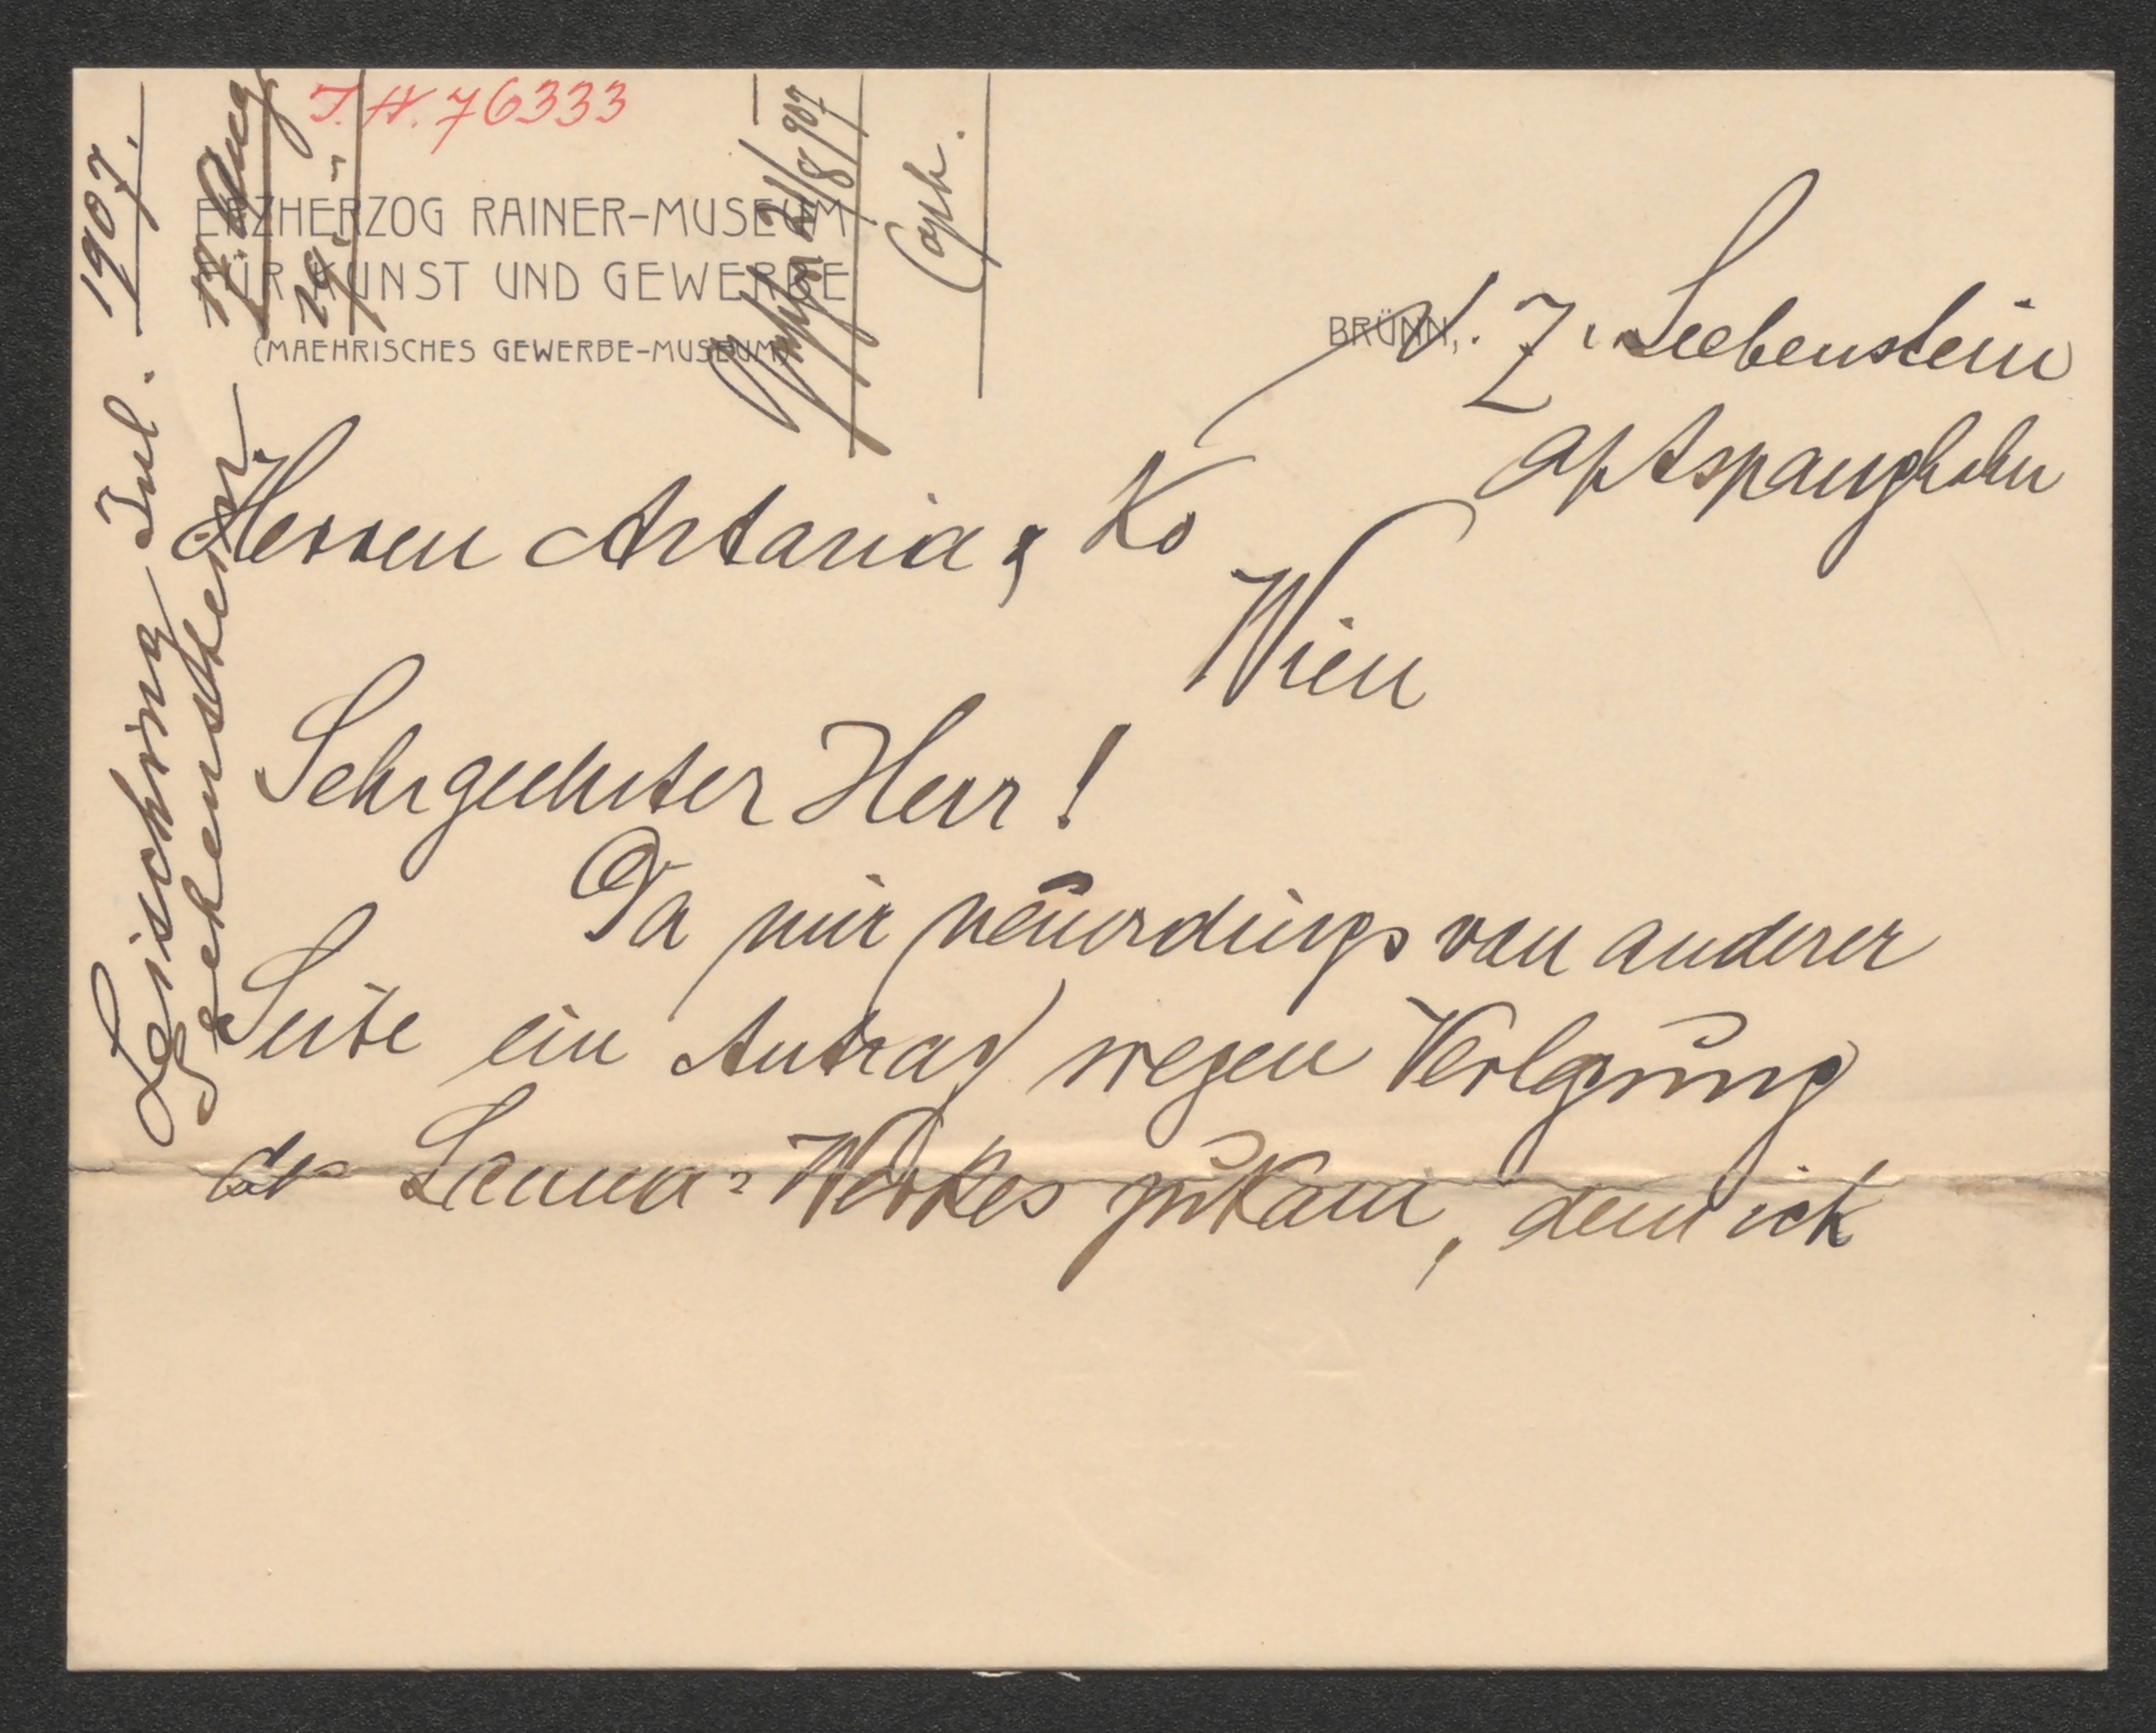 J.N. 76333
ERZHERZOG RAINER-MUSEUM
FÜR KUNST UND GEWERBE
(MAEHRISCHES GEWERBE-MUSEUM)
BRÜNN,
d. Z. Seebenstein
Aspangbahn
Leisching Jul. 1907.
Seebenstein
19. "
21/8 907
Coph.
Herren Artaria & Ko
Wien
Sehrgeehrter Herr!
Da mir neuerdings von anderer
Seite ein Antrag wegen Verlegung
des Lanna-Werkes zukam, dem ich